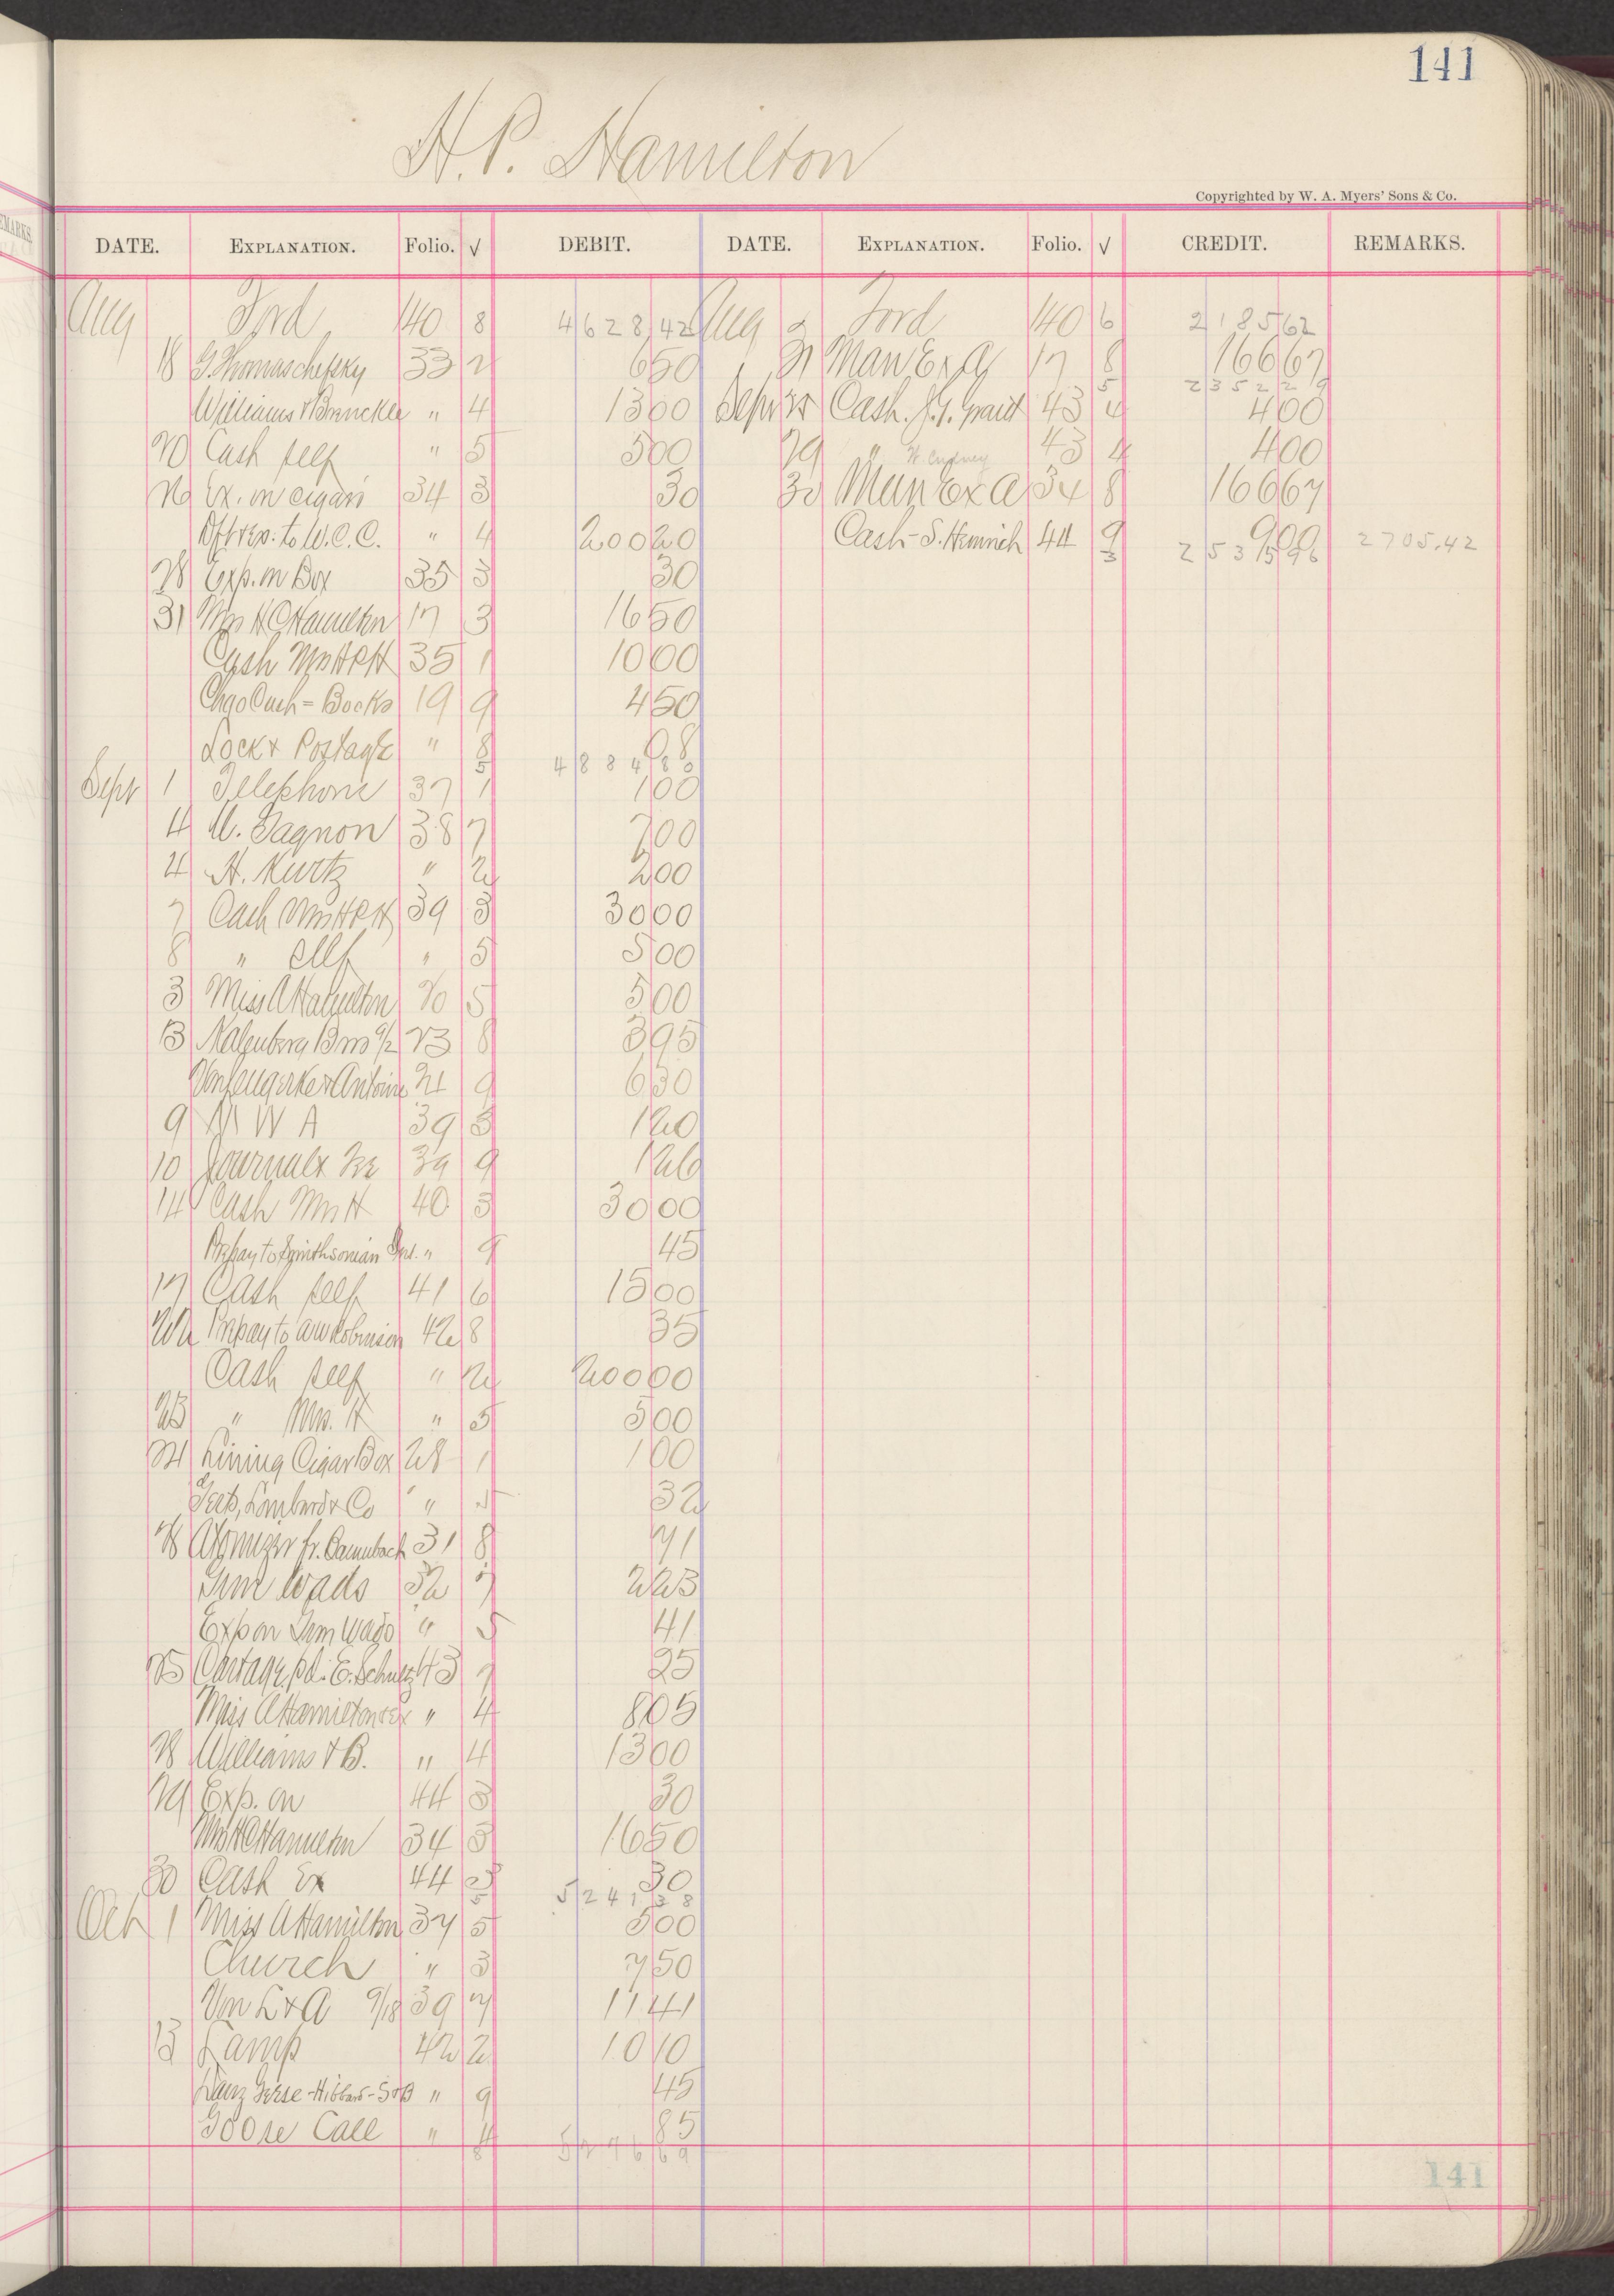 141
H. P. Hamilton
Copyrighted by W. A. Myers' Sons & Co.
DATE. EXPLANATION. Folio. √ DEBIT. DATE. EXPLANATION. Folio. √ CREDIT. REMARKS.
Aug Ford 140 8 4628,42 Aug Ford 140 6 218562
18 G. Thomaschefsky 33 2 650 31 Man Ex A 17 8 16667
5 235229
Williams & " 4 1300 Sept Cash. J. Y. Grant 43 4 400
20 Cash self " 5 500 29 " 43 4 400
26 Ex. on cigars 34 3 30 30 Man Ex A 34 8 16667
to W.C.C. " 4 20020 Cash - S. Heinrich 44 9 900
3 253596 2705.42
28 Exp. on Box 35 3 30
31 Mrs H C Hamilton 17 3 1650
Cash Mrs HPH 35 1 1000
Chgo Cash = Books 19 9 450
Lock & Postage " 8 68
5 488480
Sept 1 Telephone 37 1 100
4 U. Gagnon 38 7 700
4 H. Kurtz " 2 200
7 Cash Mrs HPH 39 3 3000
8 " self " 5 500
3 Miss A Hamilton 20 5 500
13 Bros 9/2 23 8 395
Von Lengerke & Antoine 24 9 630
9 M W A 39 3 120
10 Journal & 39 9 126
14 Cash Mrs H 40 3 3000
Prepay to Smithsonian Inst. " 9 45
17 Cash self 41 6 1500
22 Prepay to AW Robinson 42 8 35
Cash self " 2 20000
23 " Mrs. H " 5 500
24 Lining Cigar Box 28 1 100
Lombard & Co " 5 32
28 Atomizer fr. Dannbach 31 8 71
Gun Wads 32 7 223
Exp on Gun Wads " 5 41
25 Cartage, pd. E. Schultz 43 7 25
Miss A Hamilton " 4 805
28 Williams & B. " 4 1300
29 Exp. on 44 3 30
Mrs H C Hamilton 34 3 1650
30 Cash Ex 44 3 30
5 524138
Oct 1 Miss A Hamilton 37 5 500
Church " 3 750
Von L & A 9/18 39 7 1141
13 Lamp 42 2 1010
Geese - Hibbard - S & B " 9 45
Goose Call " 4 85
8 527669
141